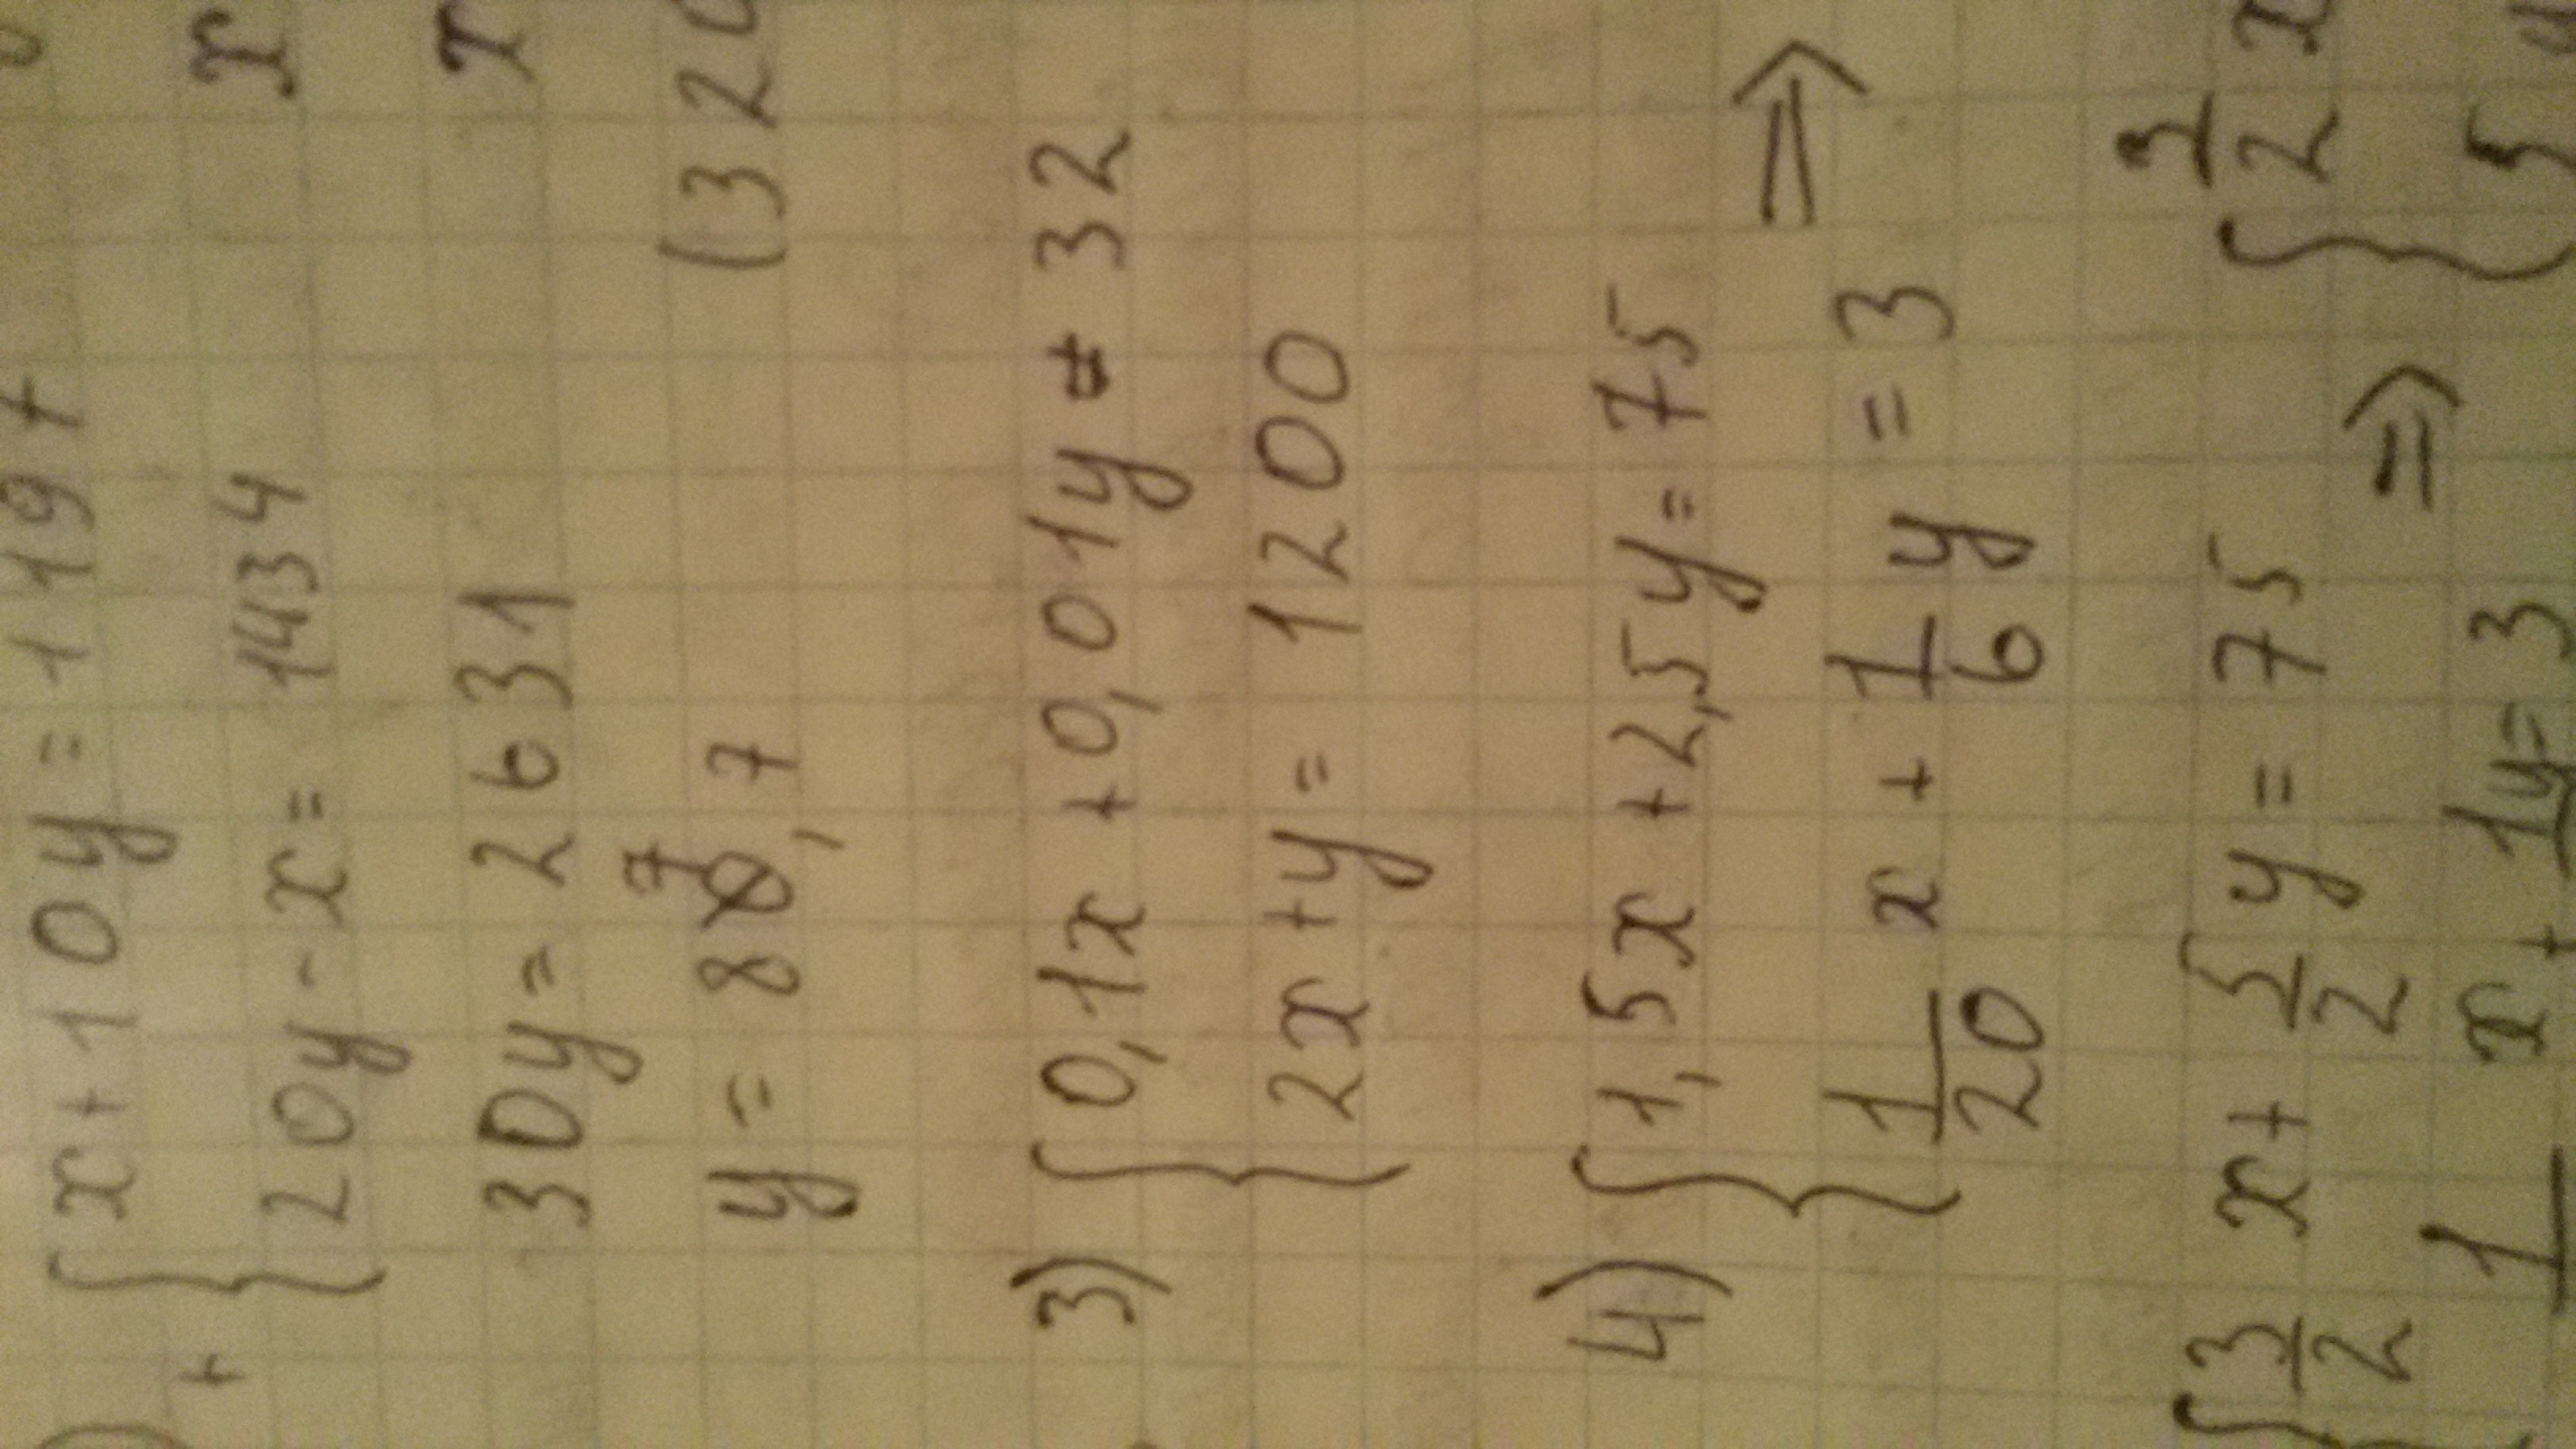 x + 10y = 1197
+
20y - x = 1434
30y = 2631
y = 87,7
(320
3) { 0,1x + 0,01y = 32
2x + y = 1200
4) { 1,5x + 2,5y = 75 ⇒
1/20 x + 1/6 y = 3
{ 3/2 x + 5/2 y = 75 ⇒ { 3/2 x
1 x + 1y = 3